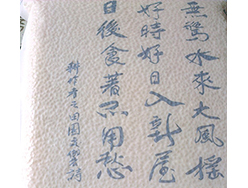 無驚水來大風搖
好時好日入新厝
日後食著不用愁